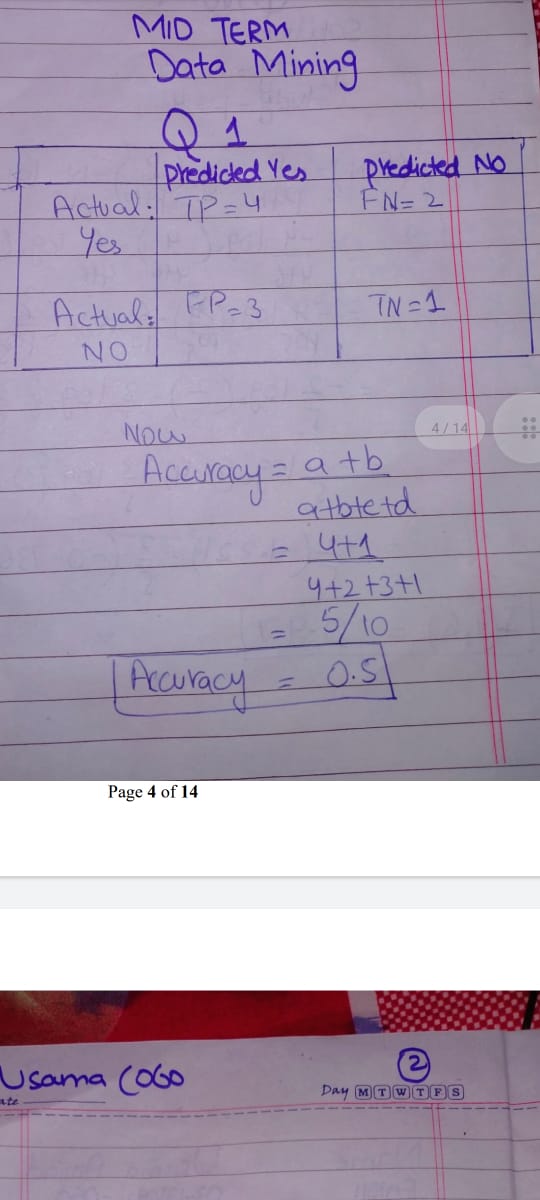 MID TERM
Data Mining
Q 1
Predicted Yes Predicted NO
Actual: TP=4 FN=2
Yes
Actual: FP=3 TN=1
NO
4/14
Now
Accuracy = a+b
a+b+c+d
= 4+1
4+2+3+1
= 5/10
Accuracy = 0.5
Page 4 of 14
Usama COGO
2
Day M T W T F S